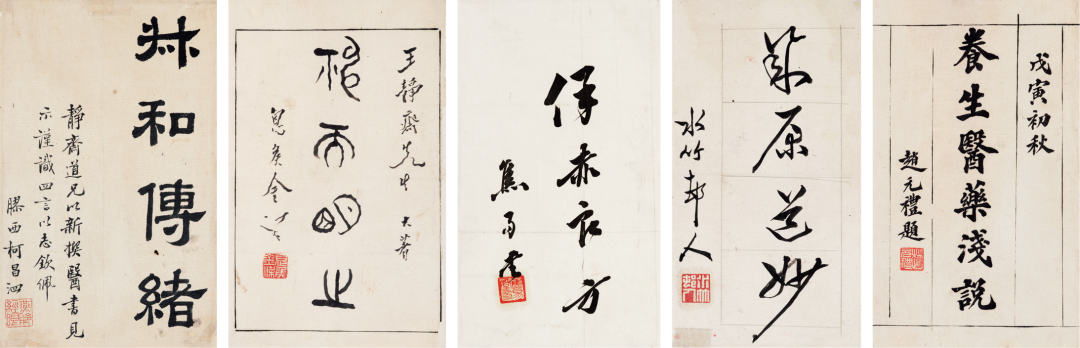 戊寅初秋
養生醫藥淺說
趙元禮題
原妙
水竹邨人
保赤良方
焦易堂
王靜齋先生大著
神而明之
息侯金梁
和傳緒
靜齋道兄以新撰醫書見
示謹識四言以志欽佩
膠西柯昌泗